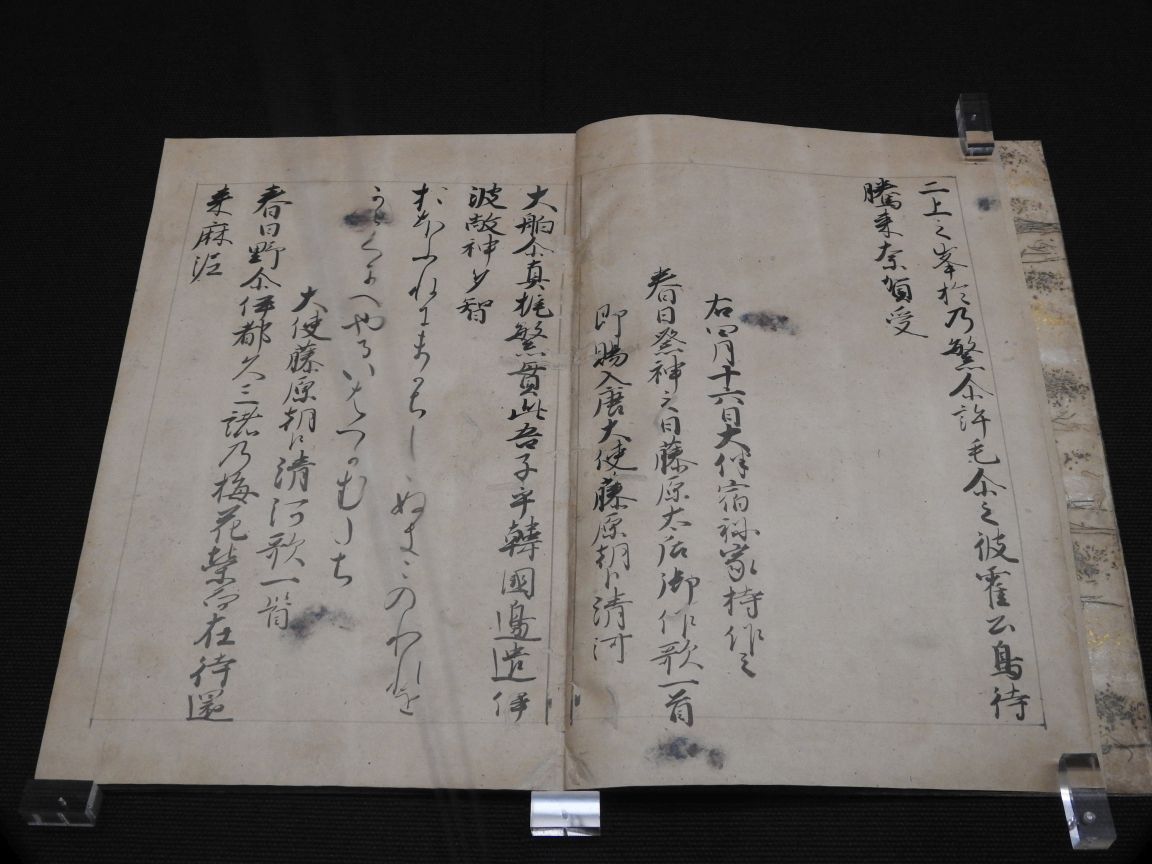 二上之峯於乃繁尒許毛尒之彼霍公鳥待
騰来奈賀受
右四月十六日大伴宿祢家持作之
春日祭神之日藤原太后御作歌一首
即賜入唐大使藤原朝臣清河
大舶尒真梶繁貫此吾子乎韓國邊遣伊
波敝神多智
おほふねにまかちしゝぬきこのわかこを
からくにへやるいはへかむたち
大使藤原朝臣清河歌一首
春日野尒伊都久三諸乃梅花榮而在待還
来麻泥